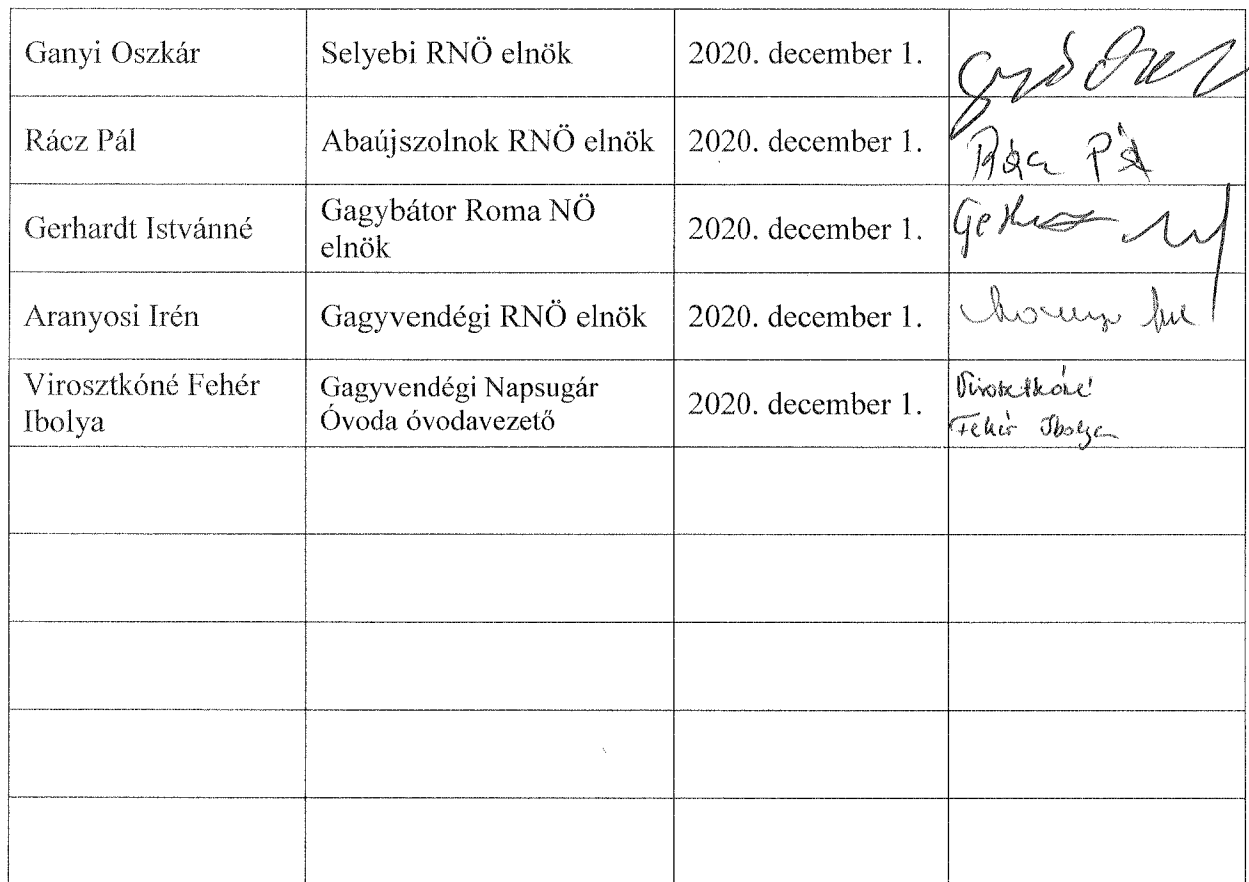 Ganyi Oszkár
Selyebi RNÖ elnök
2020. december 1.
Rácz Pál
Abaújszolnok RNÖ elnök
2020. december 1.
Rácz Pál
Gerhardt Istvánné
Gagybátor Roma NÖ
elnök
2020. december 1.
Aranyosi Irén
Gagyvendégi RNÖ elnök
2020. december 1.
Virosztkóné Fehér
Ibolya
Gagyvendégi Napsugár
Óvoda óvodavezető
2020. december 1.
Virosztkóné
Fehér Ibolya